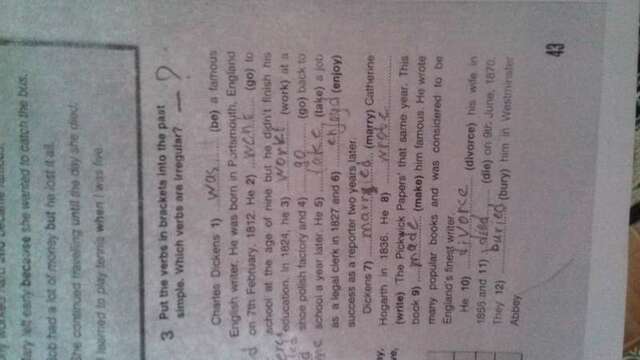 lary left early because she wanted to catch the bus.
had a lot of money but he lost it all.
She continued travelling until the day she died.
learned to play tennis when I was five.
3 Put the verbs in brackets into the past
simple. Which verbs are irregular? — ?
Charles Dickens 1) was (be) a famous
English writer. He was born in Portsmouth, England
on 7th February, 1812. He 2) went (go) to
school at the age of nine but he didn't finish his
education. In 1824, he 3) workt (work) at a
shoe polish factory and 4) go (go) back to
school a year later. He 5) take (take) a job
as a legal clerk in 1827 and 6) enjoyd (enjoy)
success as a reporter two years later.
Dickens 7) married (marry) Catherine
Hogarth in 1836. He 8) wrote
(write) 'The Pickwick Papers' that same year. This
book 9) made (make) him famous. He wrote
many popular books and was considered to be
England's finest writer.
He 10) divorce (divorce) his wife in
and 11) died (die) on 9th June, 1870.
They 12) buried (bury) him in Westminster
Abbey.
43